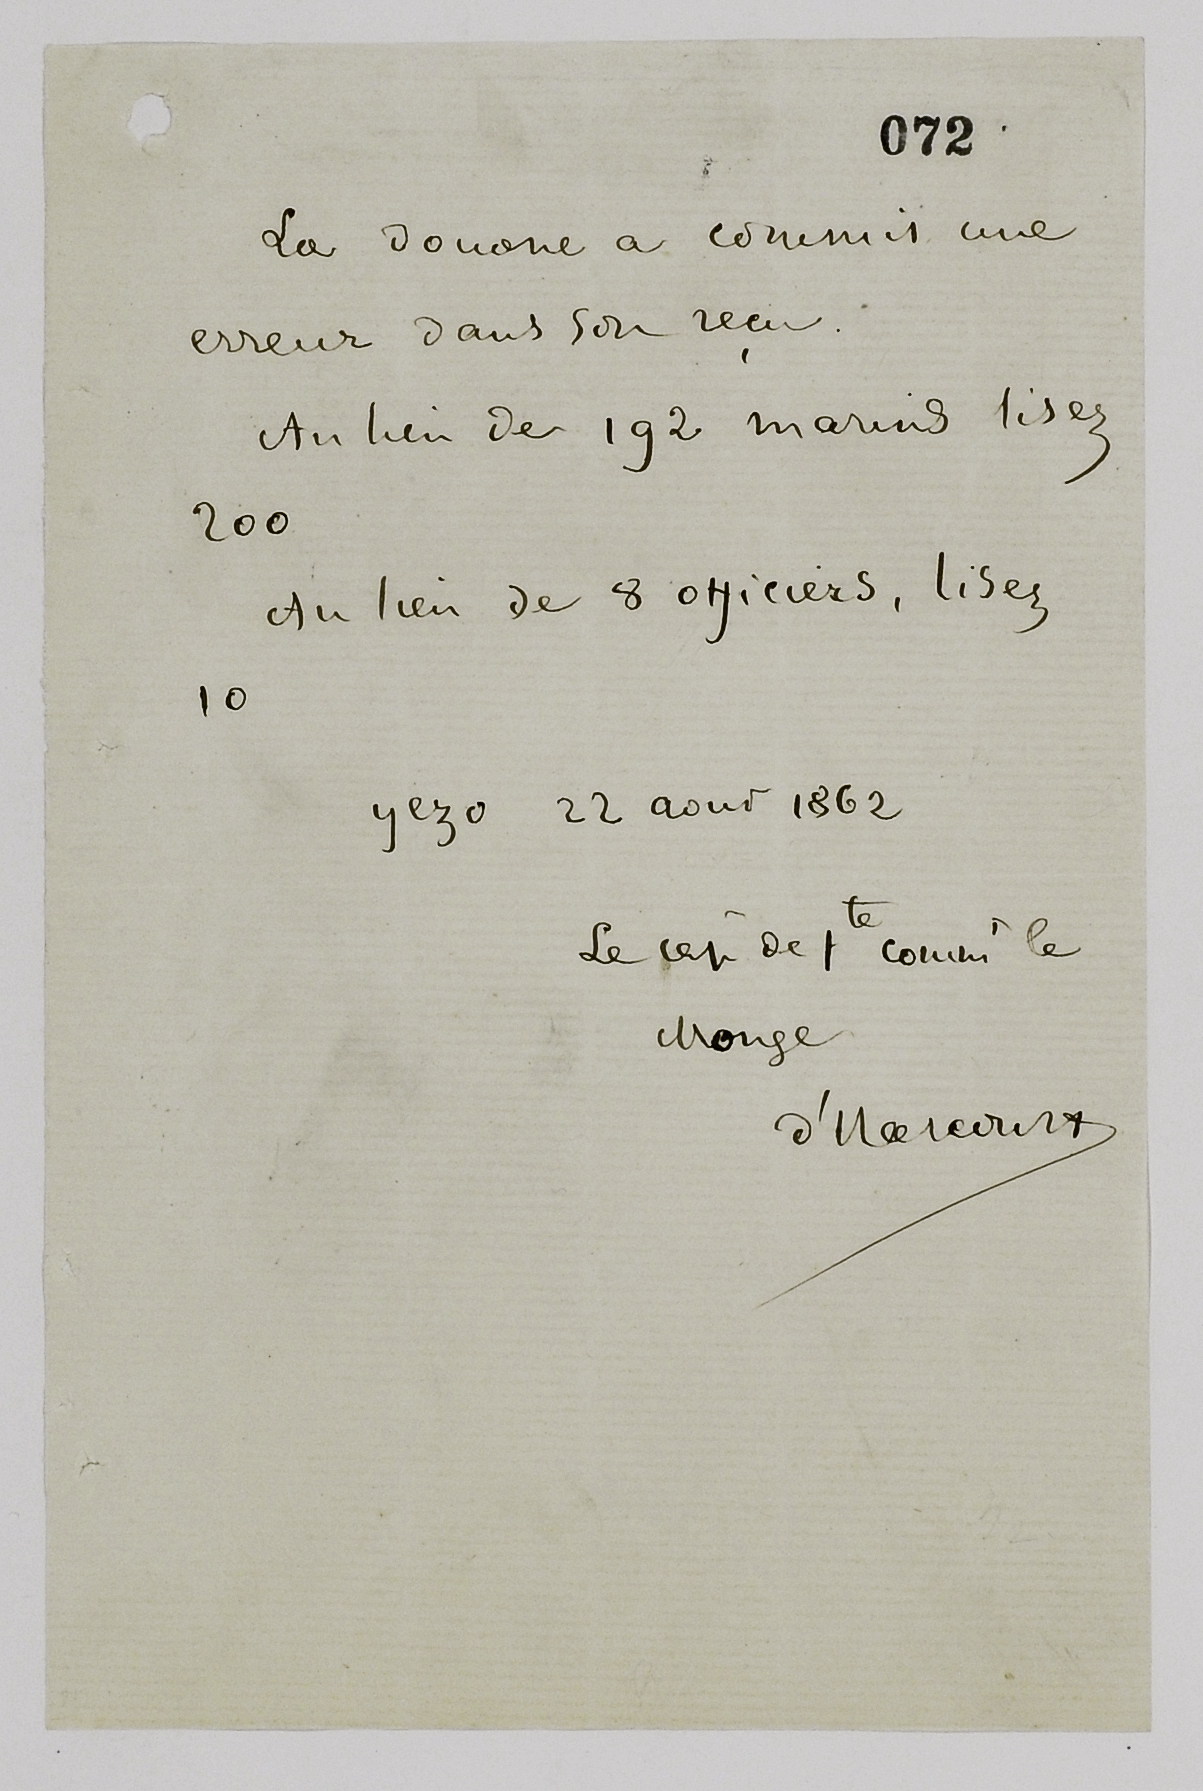 072
La douane a commis une
erreur dans son reçu.
Au lieu de 192 marins lisez
200
Au lieu de 8 officiers, lisez
10
yezo 22 aout 1862
Le cap de fte comm le
Monge
d'Harcourt